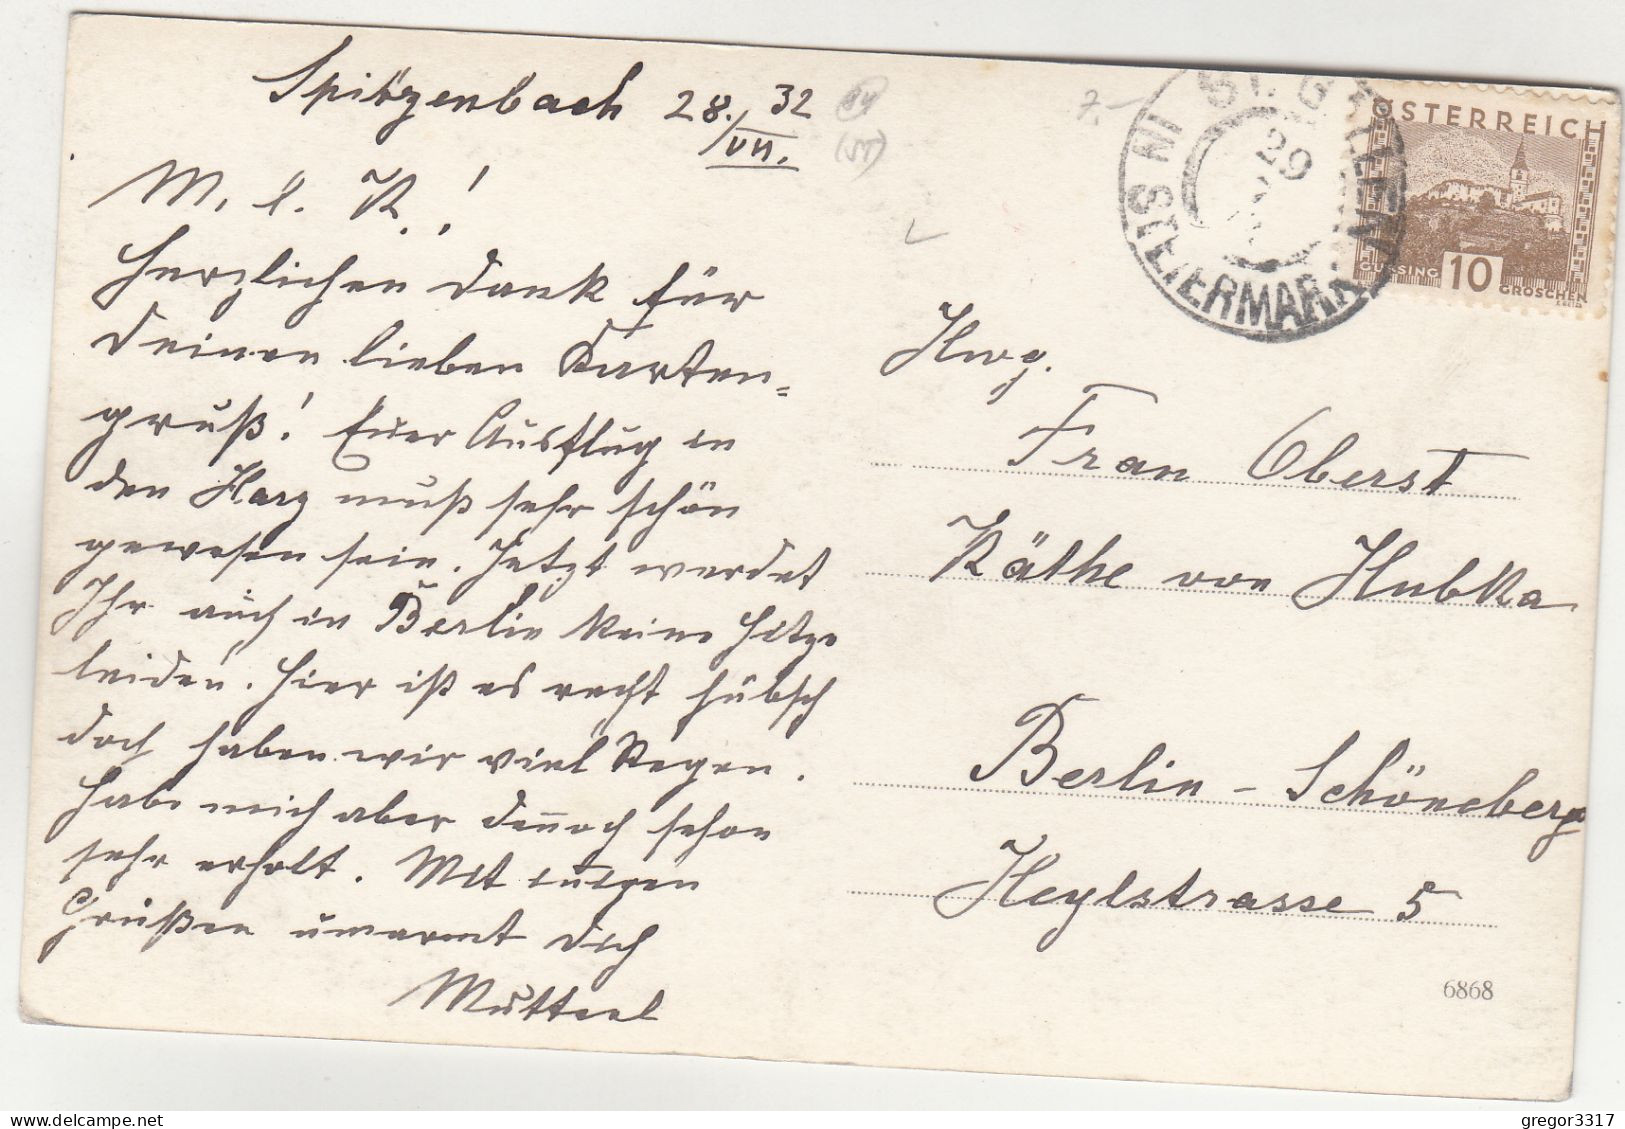 Spitzenbach 28./VII. 32
M. l. K.!
Herzlichen Dank für
Deinen lieben Karten=
gruß! Euer Ausflug in
den Harz muß sehr schön
gewesen sein. Jetzt werdet
Ihr auch in Berlin keine Hitze
leiden. Hier ist es recht hübsch
doch haben wir viel Regen.
Habe mich aber dennoch schon
sehr erholt. Mit innigen
Grüßen umarmt Dich
Mutterl
7.-
ST. GALLEN
IN STEIERMARK
29
ÖSTERREICH
GÜSSING 10 GROSCHEN
Hwg.
Frau Oberst
Käthe von Hubka
Berlin - Schöneberg
Heylstrasse 5
6868
gregor3317